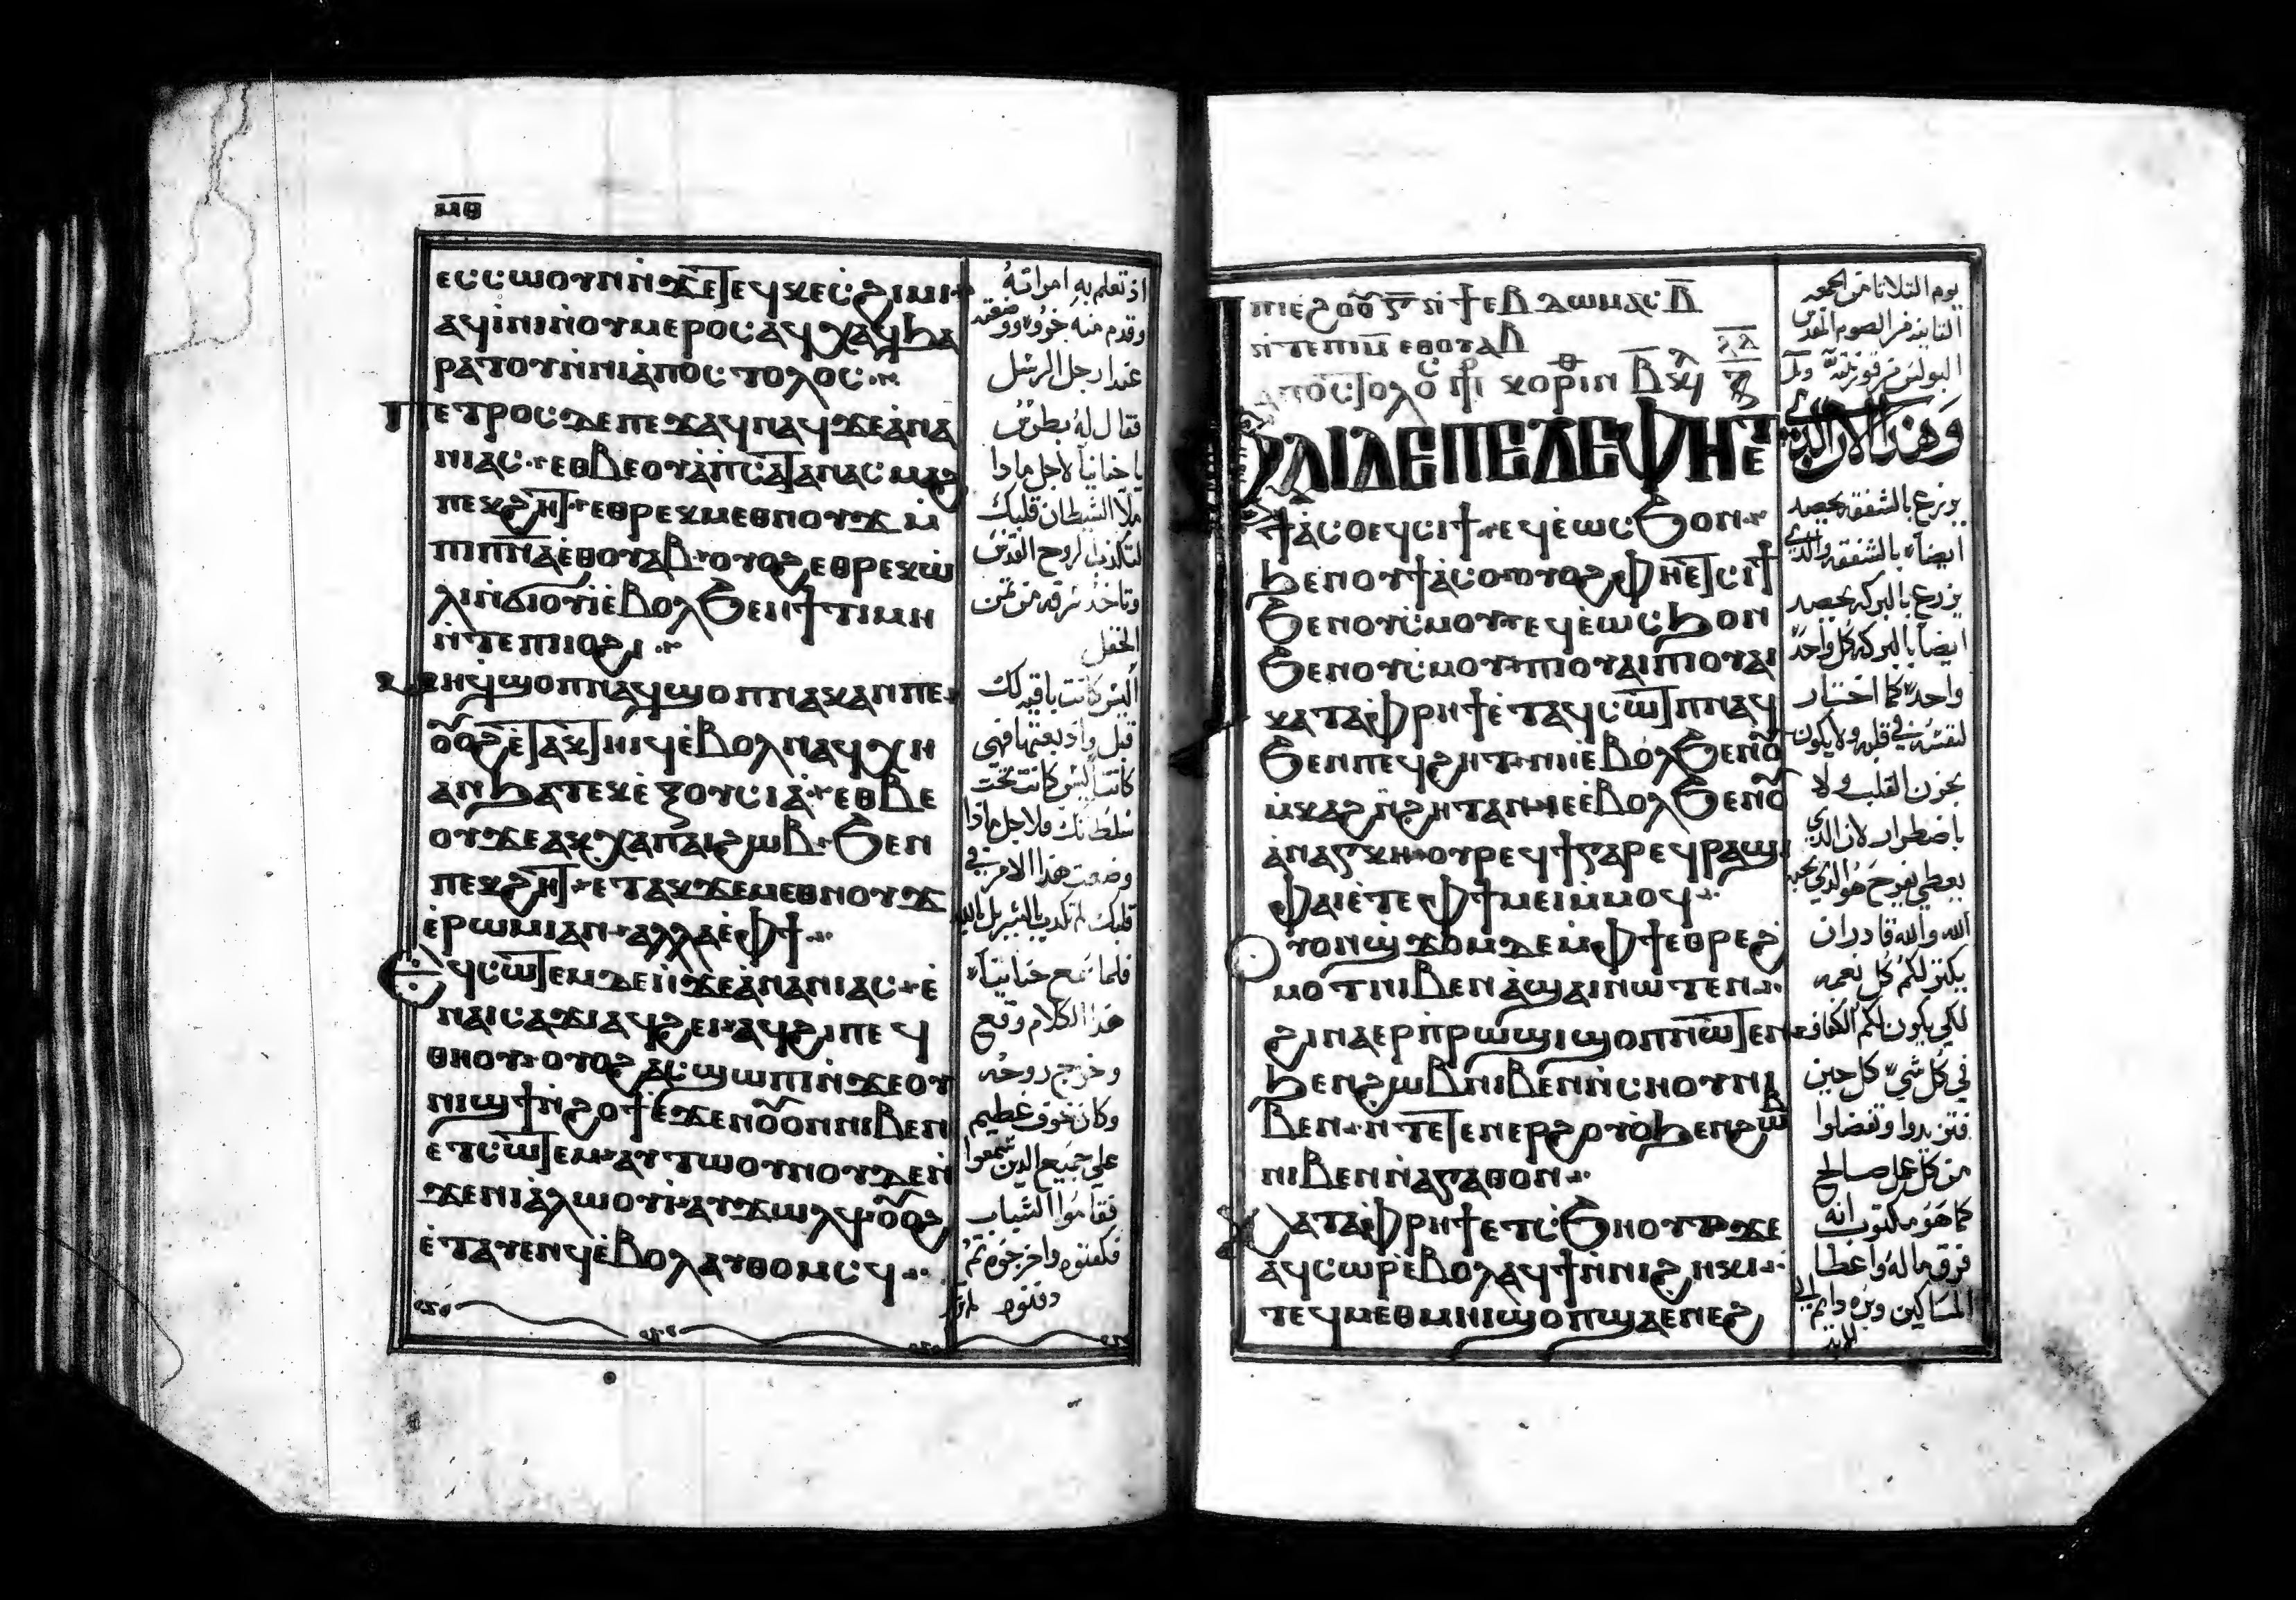 ⲙ̅ⲑ̅
ⲉⲥⲥⲱⲟⲩⲛ ⲛ̀ϫⲉⲧⲉϥⲕⲉⲥ̀ϩⲓⲙⲓ
ⲁϥⲓⲛⲓ ⲛ̀ⲟⲩⲙⲉⲣⲟⲥ ⲁϥⲭⲁϥ ϧⲁ
ⲣⲁⲧⲟⲩ ⲛ̀ⲛⲓⲁ̀ⲡⲟⲥⲧⲟⲗⲟⲥ
ⲡⲉⲧⲣⲟⲥ ⲇⲉ ⲡⲉϫⲁϥ ⲛⲁϥ ϫⲉ ⲁ̀ⲛⲁ
ⲛⲓⲁⲥ ⲉⲑⲃⲉⲟⲩ ⲁ̀ⲡⲥⲁⲧⲁⲛⲁⲥ ⲙⲁϩ
ⲡⲉⲕϩⲏⲧ ⲉⲑⲣⲉⲕⲙⲉⲑⲛⲟⲩϫ ⲙ̀
ⲡⲓⲡ̅ⲛ̅ⲁ̅ ⲉ̀ⲑⲟⲩⲁⲃ ⲟⲩⲟϩ ⲉⲑⲣⲉⲕⲱ̀
ⲗⲓ ⲛ̀ϭⲓⲟⲩⲓ̀ ⲉ̀ⲃⲟⲗϧⲉⲛ ϯⲧⲓⲙⲏ
ⲛ̀ⲧⲉ ⲡⲓⲓⲟϩⲓ
ⲙⲏ ϥ̀ϣⲟⲡ ⲛⲁϥϣⲟⲡ ⲛⲁⲕ ⲁⲛ ⲡⲉ
ⲟⲩⲟϩ ⲉ̀ⲧⲁⲕⲧⲏⲓϥ ⲉ̀ⲃⲟⲗ ⲛⲁϥⲭⲏ
ⲁⲛ ϧⲁ ⲧⲉⲕⲉ̀ⲝⲟⲩⲥⲓⲁ̀ ⲉⲑⲃⲉ
ⲟⲩ ϫⲉ ⲁⲕⲭⲁ ⲡⲁⲓϩⲱⲃ ϧⲉⲛ
ⲡⲉⲕϩⲏⲧ ⲉⲧⲁⲕϫⲉⲙⲉⲑⲛⲟⲩϫ
ⲉ̀ⲣⲱⲙⲓ ⲁⲛ ⲁⲗⲗⲁ ⲉ̀ⲫϯ
ⲉϥⲥⲱⲧⲉⲙ ⲇⲉ ⲛ̀ϫⲉ ⲁ̀ⲛⲁⲛⲓⲁⲥ ⲉ̀
ⲛⲁⲓⲥⲁϫⲓ ⲁϥϩⲉⲓ ⲁϥϩⲓ ⲡⲉϥ
ⲑⲏⲟⲩ ⲟⲩⲟϩ ⲁⲥϣⲱⲡⲓ ⲛ̀ϫⲉ ⲟⲩ
ⲛⲓϣϯ ⲛ̀ϩⲟϯ ⲉ̀ϫⲉⲛ ⲟⲩⲟⲛ ⲛⲓⲃⲉⲛ
ⲉⲧⲥⲱⲧⲉⲙ ⲁⲩⲧⲱⲟⲩⲛⲟⲩ ⲇⲉ ⲛ̀
ϫⲉ ⲛⲓⲁ̀ⲗⲱⲟⲩⲓ̀ ⲁⲩϫⲱⲗϥ ⲟⲩⲟϩ
ⲉ̀ⲧⲁⲩⲉⲛϥ ⲉ̀ⲃⲟⲗ ⲁⲩⲑⲟⲙⲥϥ
اذ تعلم به امراته
وقدم منه جزوا ووضعه
عند ارجل الرسل
فقال له بطرس
يا حنانيا لاجل ماذا
ملا الشيطان قلبك
لتكذب لروح القدس
وتاخذ سرقه من ثمن
الحقل
اليس كانت باقيه لك
قبل واذ بعتها فهي
كانت اليس كانت تحت
سلطانك فلاجل ماذا
وضعت هذا الامر في
قلبك لم تكدب بالبشر بل بالله
فلما سمع حنانيا
هذا الكلام وقع
وخرج روحه
وكان خوف عظيم
علي جميع الدين سمعوا
فقاموا الشباب
فكفنوه واخرجوه ثم
دفنوه
ⲡⲓⲉϩⲟⲟⲩ ⲅ̅ ⲛ̀ϯⲉⲃⲇⲱⲙⲁⲥ ⲃ̅
ⲛ̀ⲧⲉ ⲡⲓⲙ̅ ⲉⲑⲟⲩⲁⲃ
ⲁⲡⲟⲥⲧⲟⲗⲟⲥ ⲡⲣⲟⲥ ⲕⲟⲣⲓⲛⲑ ⲃ̅
ⲫⲁⲓ ⲇⲉ ⲡⲉ ϫⲉ ⲫⲏ ⲉⲧ
ϯⲁ̀ⲥⲟ ⲉϥⲥⲓϯ ⲉϥⲉ̀ⲱⲥϧ ⲟⲛ
ϧⲉⲛ ⲟⲩϯⲁ̀ⲥⲟ ⲟⲩⲟϩ ⲫⲏ ⲉⲧⲥⲓϯ
ϧⲉⲛ ⲟⲩⲥ̀ⲙⲟⲩ ⲉϥⲉ̀ⲱⲥϧ ⲟⲛ
ϧⲉⲛ ⲟⲩⲥ̀ⲙⲟⲩ ⲡⲓⲟⲩⲁⲓ ⲡⲓⲟⲩⲁⲓ
ⲕⲁⲧⲁ ⲫ̀ⲣⲏϯ ⲉ̀ⲧⲁϥⲥⲱⲧⲡ ⲛⲁϥ
ϧⲉⲛ ⲡⲉϥϩⲏⲧ ⲛⲓⲉ̀ⲃⲟⲗϧⲉⲛ ⲟⲩ
ⲙ̀ⲕⲁϩ ⲛ̀ϩⲏⲧ ⲁⲛ ⲓⲉ ⲉ̀ⲃⲟⲗϧⲉⲛ ⲟⲩ
ⲁ̀ⲛⲁⲅⲕⲏ ⲟⲩⲣⲉϥϯ ⲅⲁⲣ ⲉϥⲣⲁϣⲓ
ⲫⲁⲓ ⲉ̀ⲧⲉ ⲫϯ ⲙⲉⲓ ⲙ̀ⲙⲟϥ
ⲟⲩⲟⲛ ϣϫⲟⲙ ⲇⲉ ⲙ̀ⲫϯ ⲉⲑⲣⲉ ϩ
ⲙⲟⲧ ⲛⲓⲃⲉⲛ ⲁ̀ϣⲁⲓ ⲛⲱⲧⲉⲛ
ϩⲓⲛⲁ ⲉⲣⲉ ⲡ̀ⲣⲱϣⲓ ϣⲟⲡ ⲛⲱⲧⲉⲛ
ϧⲉⲛ ϩⲱⲃ ⲛⲓⲃⲉⲛ ⲛ̀ⲥⲏⲟⲩ ⲛⲓ
ⲃⲉⲛ ⲛ̀ⲧⲉⲧⲉⲛⲉⲣϩⲟⲩⲟ̀ ϧⲉⲛ ϩⲱⲃ
ⲛⲓⲃⲉⲛ ⲛ̀ⲁⲅⲁⲑⲟⲛ
ⲕⲁⲧⲁ ⲫ̀ⲣⲏϯ ⲉⲧⲥ̀ϧⲏⲟⲩⲧ ϫⲉ
ⲁϥⲥⲱⲣ ⲉ̀ⲃⲟⲗ ⲁϥϯ ⲛ̀ⲛⲓϩⲏⲕⲓ
ⲧⲉϥⲙⲉⲑⲙⲏⲓ ϣⲟⲡ ϣⲁ ⲉⲛⲉϩ
يوم التلاتا من الجمعه
التانيه من الصوم المقدس
وهذا لان الذي
يزرع بالشفقه يحصد
ايضا بالشفقه والذي
يزرع بالبركه يحصد
ايضا بالبركه كل واحد
واحد كما اختار
لنفسه في قلبه ولا يكون
بحزن القلب ولا
باضطرار لان الذي
يعطي بفرح هو الذي يحبه
الله والله قادر ان
يكتر لكم كل نعمه
لكي يكون لكم الكفاف
في كل شي كل حين
فتزيدوا وتفضلوا
من كل عمل صالح
كما هو مكتوب انه
فرق ماله واعطا
المساكين وبره دايم الي
الابد